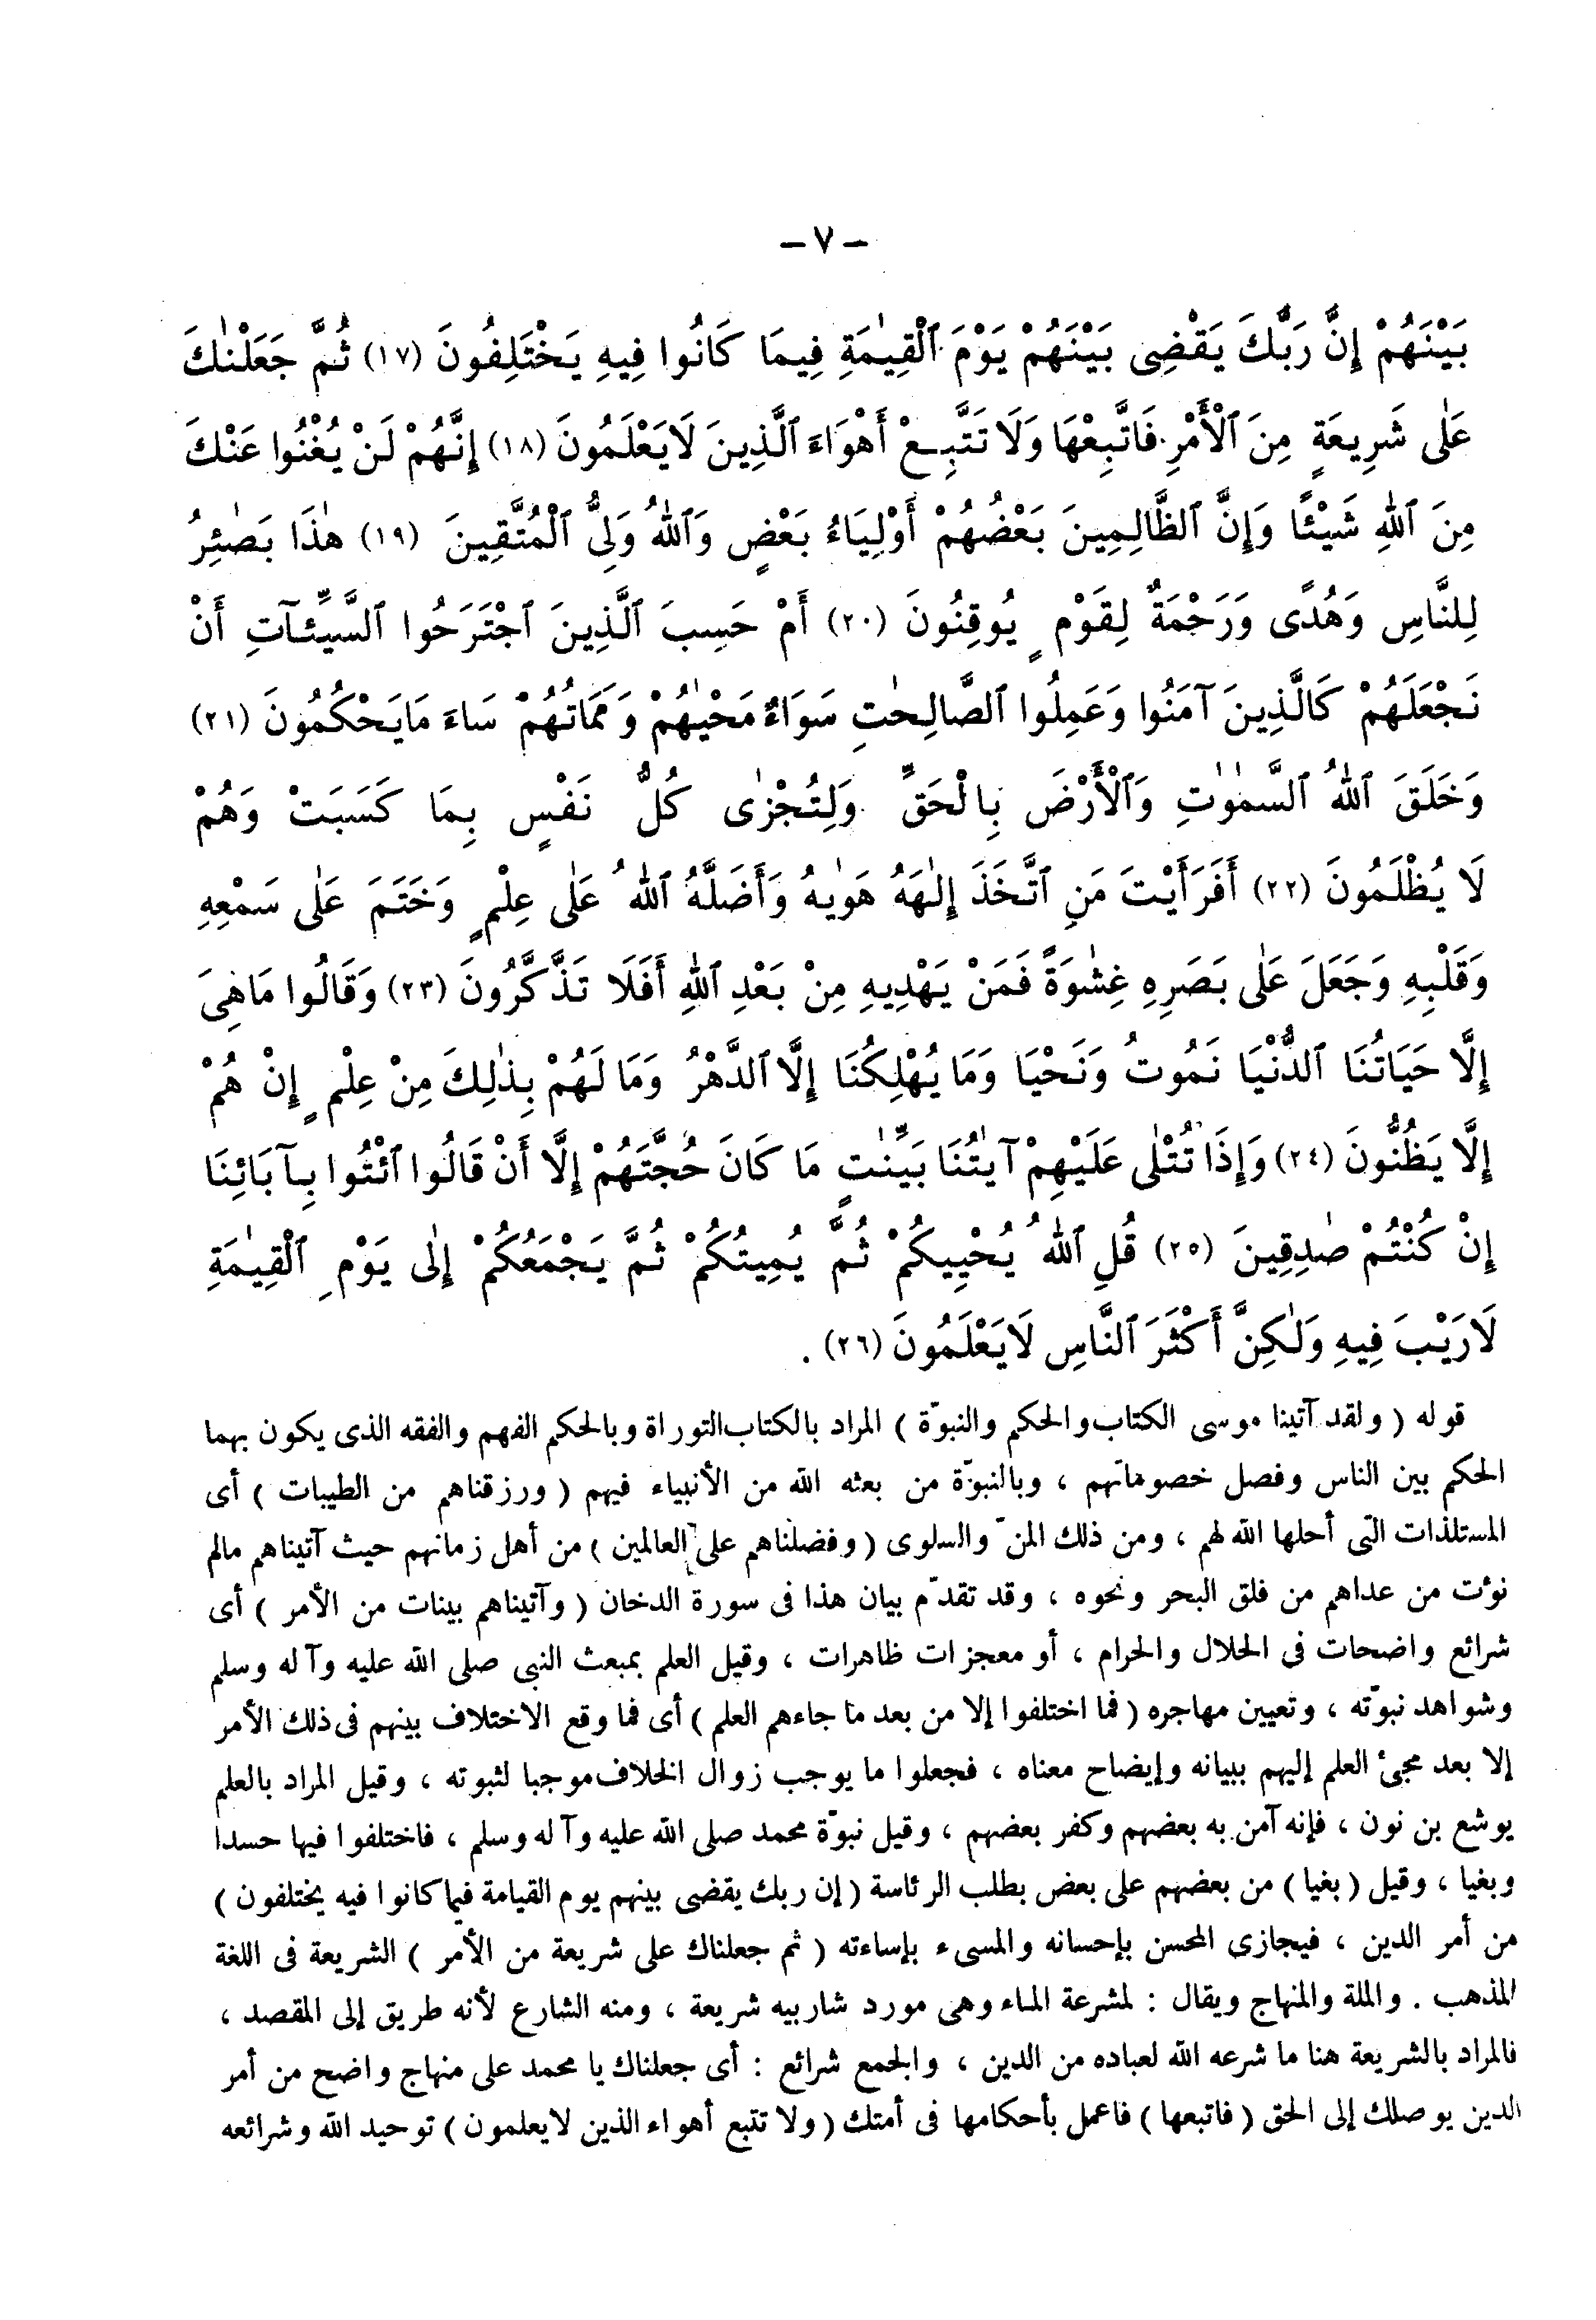 — ٧ —
بَيْنَهُمْ إِنَّ رَبَّكَ يَقْضِى بَيْنَهُمْ يَوْمَ ٱلْقِيٰمَةِ فِيمَا كَانُوا فِيهِ يَخْتَلِفُونَ (١٧) ثُمَّ جَعَلْنٰكَ
عَلٰى شَرِيعَةٍ مِنَ ٱلْأَمْرِ فَاتَّبِعْهَا وَلَا تَتَّبِعْ أَهْوَاءَ ٱلَّذِينَ لَايَعْلَمُونَ (١٨) إِنَّهُمْ لَنْ يُغْنُوا عَنْكَ
مِنَ ٱللهِ شَيْئًا وَإِنَّ ٱلظَّالِمِينَ بَعْضُهُمْ أَوْلِيَاءُ بَعْضٍ وَٱللهُ وَلِىُّ ٱلْمُتَّقِينَ (١٩) هٰذَا بَصٰئِرُ
لِلنَّاسِ وَهُدًى وَرَحْمَةٌ لِقَوْمٍ يُوقِنُونَ (٢٠) أَمْ حَسِبَ ٱلَّذِينَ ٱجْتَرَحُوا ٱلسَّيِّئَآتِ أَنْ
نَجْعَلَهُمْ كَالَّذِينَ آمَنُوا وَعَمِلُوا ٱلصَّالِحٰتِ سَوَاءٌ مَحْيٰهُمْ وَمَمَاتُهُمْ سَاءَ مَايَحْكُمُونَ (٢١)
وَخَلَقَ ٱللهُ ٱلسَّمٰوٰتِ وَٱلْأَرْضَ بِالْحَقِّ وَلِتُجْزٰى كُلُّ نَفْسٍ بِمَا كَسَبَتْ وَهُمْ
لَا يُظْلَمُونَ (٢٢) أَفَرَأَيْتَ مَنِ ٱتَّخَذَ إِلٰهَهُ هَوٰيهُ وَأَضَلَّهُ ٱللهُ عَلٰى عِلْمٍ وَخَتَمَ عَلٰى سَمْعِهِ
وَقَلْبِهِ وَجَعَلَ عَلٰى بَصَرِهِ غِشٰوَةً فَمَنْ يَهْدِيهِ مِنْ بَعْدِ ٱللهِ أَفَلَا تَذَّكَّرُونَ (٢٣) وَقَالُوا مَاهِىَ
إِلَّا حَيَاتُنَا ٱلدُّنْيَا نَمُوتُ وَنَحْيَا وَمَا يُهْلِكُنَا إِلَّا ٱلدَّهْرُ وَمَا لَهُمْ بِذٰلِكَ مِنْ عِلْمٍ إِنْ هُمْ
إِلَّا يَظُنُّونَ (٢٤) وَإِذَا تُتْلٰى عَلَيْهِمْ آيٰتُنَا بَيِّنٰتٍ مَا كَانَ حُجَّتَهُمْ إِلَّا أَنْ قَالُوا ٱئْتُوا بِآبَائِنَا
إِنْ كُنْتُمْ صٰدِقِينَ (٢٥) قُلِ ٱللهُ يُحْيِيكُمْ ثُمَّ يُمِيتُكُمْ ثُمَّ يَجْمَعُكُمْ إِلٰى يَوْمِ ٱلْقِيٰمَةِ
لَارَيْبَ فِيهِ وَلٰكِنَّ أَكْثَرَ ٱلنَّاسِ لَايَعْلَمُونَ (٢٦) .
قوله ( ولقد آتينا موسى الكتاب والحكم والنبوّة ) المراد بالكتاب التوراة وبالحكم الفهم والفقه الذى يكون بهما
الحكم بين الناس وفصل خصوماتهم ، وبالنبوّة من بعثه الله من الأنبياء فيهم ( ورزقناهم من الطيبات ) أى
المستلذات التى أحلها الله لهم ، ومن ذلك المنّ والسلوى ( وفضلناهم على العالمين ) من أهل زمانهم حيث آتيناهم مالم
نؤت من عداهم من فلق البحر ونحوه ، وقد تقدّم بيان هذا فى سورة الدخان ( وآتيناهم بينات من الأمر ) أى
شرائع واضحات فى الحلال والحرام ، أو معجزات ظاهرات ، وقيل العلم بمبعث النبى صلى الله عليه وآله وسلم
وشواهد نبوّته ، وتعيين مهاجره ( فما اختلفوا إلا من بعد ما جاءهم العلم ) أى فما وقع الاختلاف بينهم فى ذلك الأمر
إلا بعد مجىء العلم إليهم ببيانه وإيضاح معناه ، فجعلوا ما يوجب زوال الخلاف موجبا لثبوته ، وقيل المراد بالعلم
يوشع بن نون ، فإنه آمن به بعضهم وكفر بعضهم ، وقيل نبوّة محمد صلى الله عليه وآله وسلم ، فاختلفوا فيها حسدا
وبغيا ، وقيل ( بغيا ) من بعضهم على بعض بطلب الرئاسة ( إن ربك يقضى بينهم يوم القيامة فيما كانوا فيه يختلفون )
من أمر الدين ، فيجازى المحسن بإحسانه والمسىء بإساءته ( ثم جعلناك على شريعة من الأمر ) الشريعة فى اللغة
المذهب . والملة والمنهاج ويقال : لمشرعة الماء وهى مورد شاربيه شريعة ، ومنه الشارع لأنه طريق إلى المقصد ،
فالمراد بالشريعة هنا ما شرعه الله لعباده من الدين ، والجمع شرائع : أى جعلناك يا محمد على منهاج واضح من أمر
الدين يوصلك إلى الحق ( فاتبعها ) فاعمل بأحكامها فى أمتك ( ولا تتبع أهواء الذين لايعلمون ) توحيد الله وشرائعه